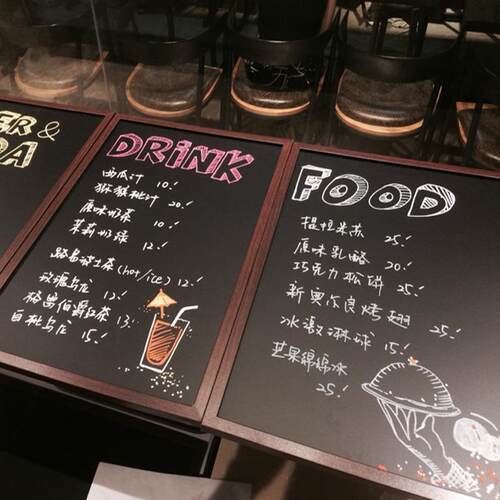 ER &
DA
DRINK
西瓜汁 10.!
猕猴桃汁 20.!
原味奶茶 10.!
茉莉奶绿 12.!
路易波士茶(hot/ice) 12.!
玫瑰乌龙 12.!
格雷伯爵红茶 13.!
白桃乌龙 15.!
FOOD
提拉米苏 25.!
原味乳酪 20.!
巧克力松饼 25.!
新奥尔良烤翅 25.!
冰激淋球 15.!
芒果绵绵冰
25.!